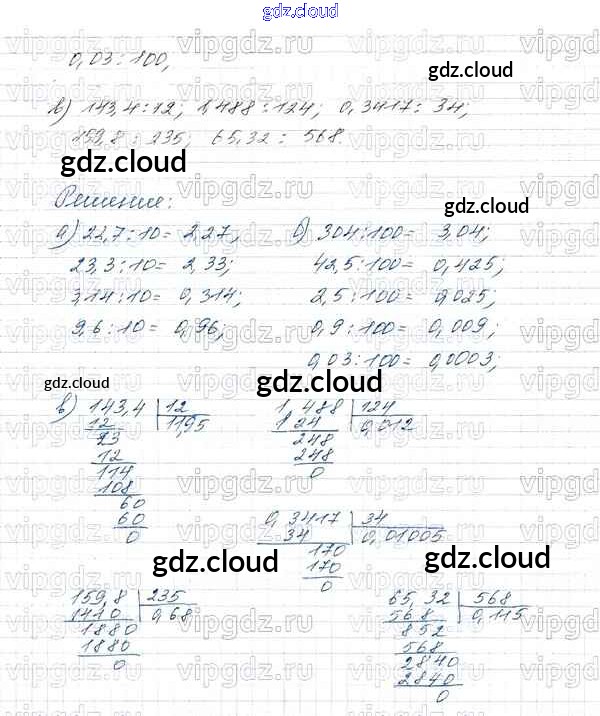 gdz.cloud
0,03 : 100,
gdz.cloud
в) 143,4 : 12; 1,488 : 124; 0,3417 : 34;
159,8 : 235; 65,32 : 568.
gdz.cloud
Решение:
gdz.cloud
а) 22,7:10= 2,27; б) 304:100= 3,04;
23,3:10= 2,33; 42,5:100= 0,425;
3,14:10= 0,314; 2,5:100= 0,025;
9,6:10= 0,96; 0,9:100= 0,009;
0,03:100= 0,0003;
gdz.cloud gdz.cloud
в) 143,4 12 1,488 124
12 11,95 124 0,012
23 248
12 248
114 0
108
60
60 0,3417 34
0 34 0,01005
170
170
0
gdz.cloud gdz.cloud
159,8 235 65,32 568
1410 0,68 568 0,115
1880 852
1880 568
0 2840
2840
0
vipgdz.ru